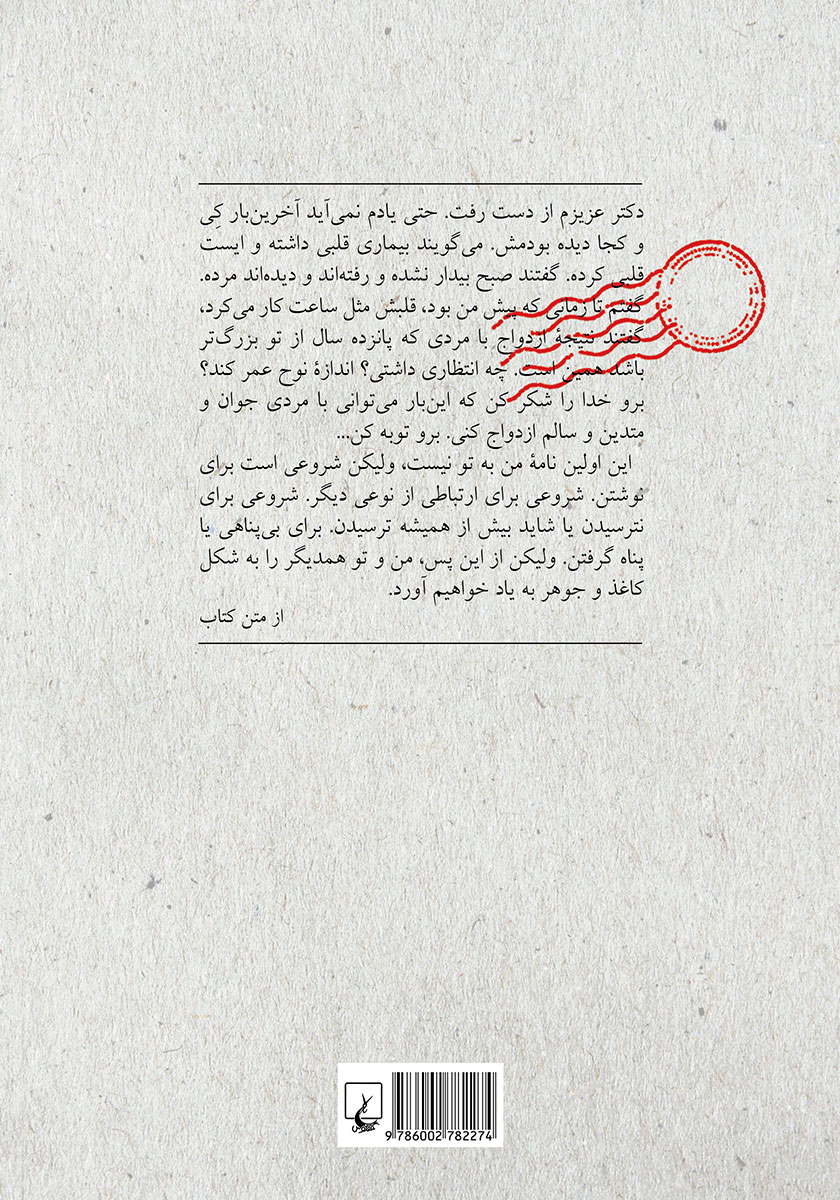 دکتر عزیزم از دست رفت. حتی یادم نمی‌آید آخرین‌بار کِی
و کجا دیده بودمش. می‌گویند بیماری قلبی داشته و ایست
قلبی کرده. گفتند صبح بیدار نشده و رفته‌اند و دیده‌اند مرده.
گفتم تا زمانی که پیش من بود، قلبش مثل ساعت کار می‌کرد،
گفتند نتیجهٔ ازدواج با مردی که پانزده سال از تو بزرگ‌تر
باشد همین است. چه انتظاری داشتی؟ اندازهٔ نوح عمر کند؟
برو خدا را شکر کن که این‌بار می‌توانی با مردی جوان و
متدین و سالم ازدواج کنی. برو توبه کن...
این اولین نامهٔ من به تو نیست، ولیکن شروعی است برای
نوشتن. شروعی برای ارتباطی از نوعی دیگر. شروعی برای
نترسیدن یا شاید بیش از همیشه ترسیدن. برای بی‌پناهی یا
پناه گرفتن. ولیکن از این پس، من و تو همدیگر را به شکل
کاغذ و جوهر به یاد خواهیم آورد.
از متن کتاب
9 786002 782274